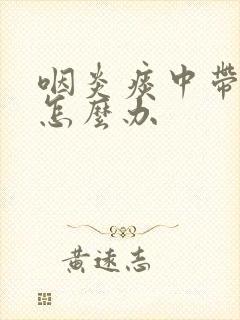 咽炎痰中帶
怎麼办
黄遠志